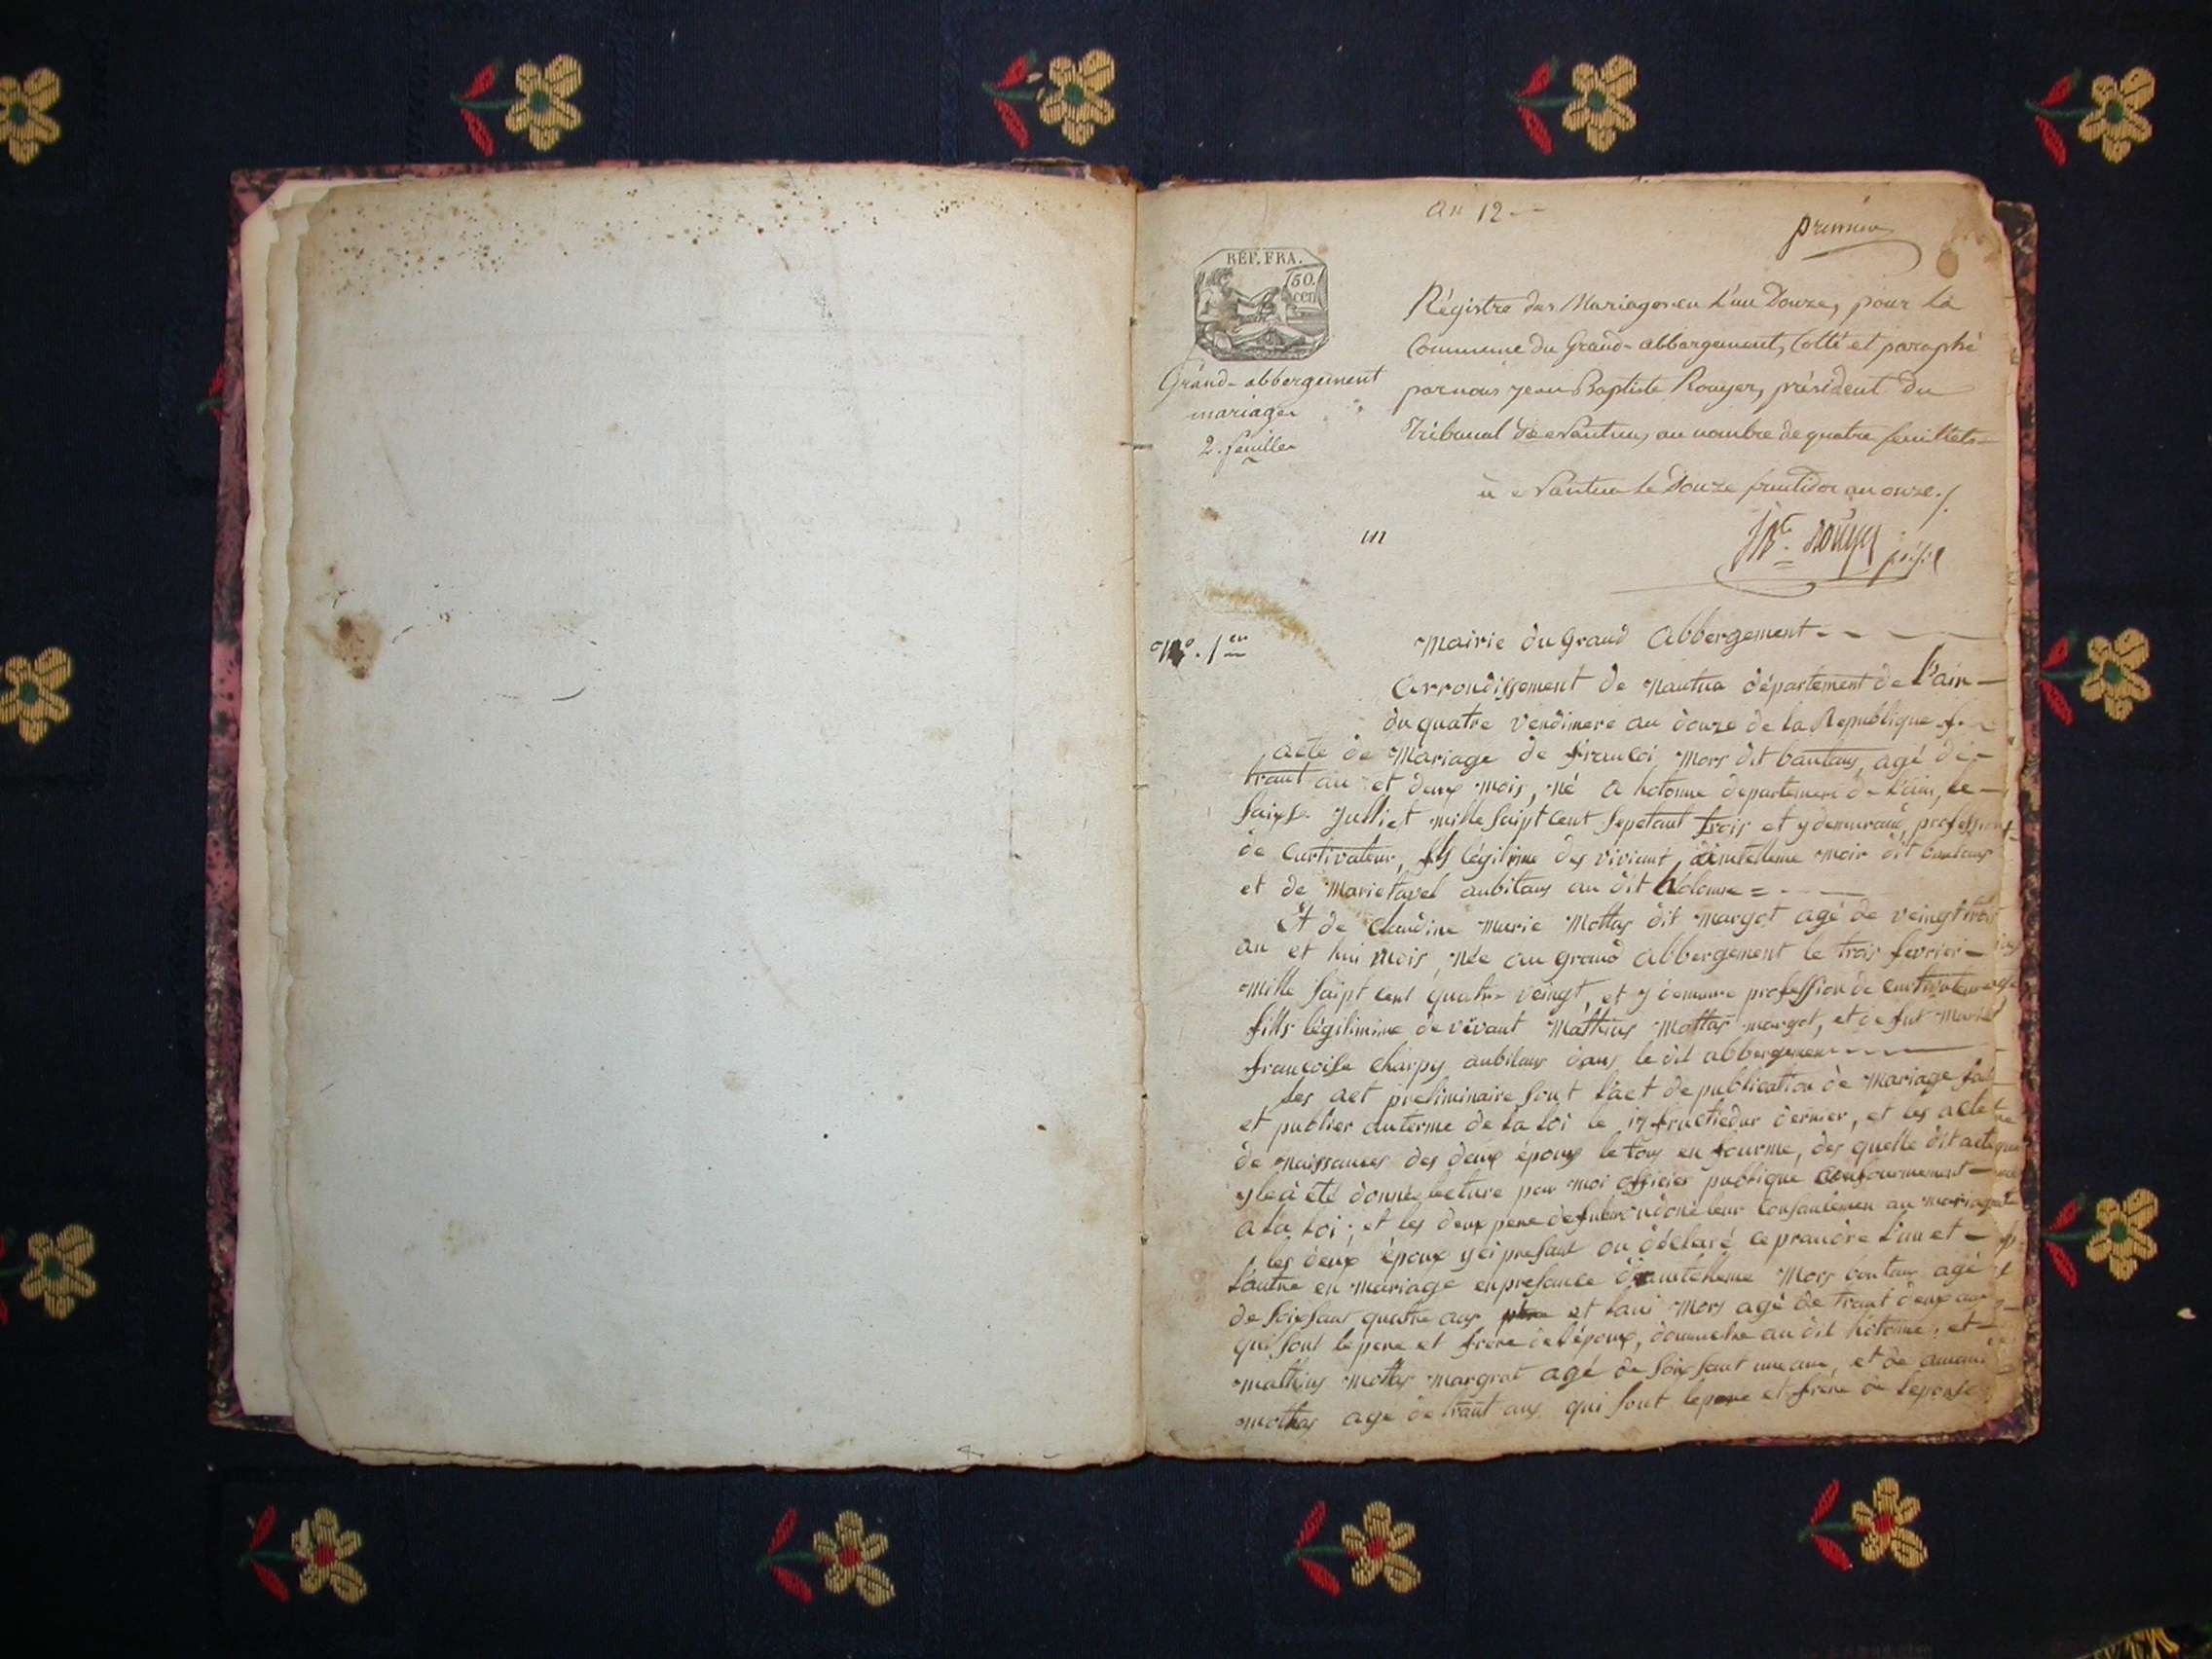 an 12
premier
REP. FRA.
50.
cen
Grand-abbergement
mariages
2. feuilles
Régistre des Mariages en L'an Douze, pour La
Commune du Grand-abbergement, Cotté et paraphé
par nous Jean Baptiste Rouyer, président du
Tribunal de Nantua, au nombre de quatre feuillets
à Nantua le Douze fructidor an onze./.
JBte Rouyer
Nº. 1er
Mairie du Grand abbergement
arrondissement de nantua département de L'ain
du quatre vendimere an douze de la Republique
acte de Mariage de francoi Mors dit bantans, agé de
trant an et deux mois, né a hotonne departement de L'ain, le
Juilliet mille saipt cent sepetant trois et y demurant, profession
de Curtivateur, fils légitime des viviant, mors dit
et de Marie tavel aubitans au dit hotonne
Et de Claudine Marie Mottas dit margot agé de veingt trois
an et hui mois, née au grand abbergement le trois fevrier
mille saipt cent quatre veingt, et y demure profession de Curtivateur
fills légitimime de vivant Mathius Mottas margot, et de fut Marie
francoise Charpy aubitans dans le dit abbergement
Les act preliminaire sont l'act de publication de Mariage
et publier au terme de la Loi le 17 fructiedor dernier, et les acte
de naissances des deux époux le tous en fourme, des quelle dit acte
y le a été donnée lecture par moi officier publique confourmement
a la Loi; et les deux pere leur consantemen au mariage
les deux époux yci presant on déclaré ce prandre L'un et
L'autre en mariage en presance Mors agé
de soixsant quatre ans et Mors agé de trant deux ans
qui sont le pere et frere de l'époux, au dit hotonne, et
mathius mottas margrot agé de soixsant une ans, et de
mottas agé de trant ans qui sont le pere et frére de lepouse